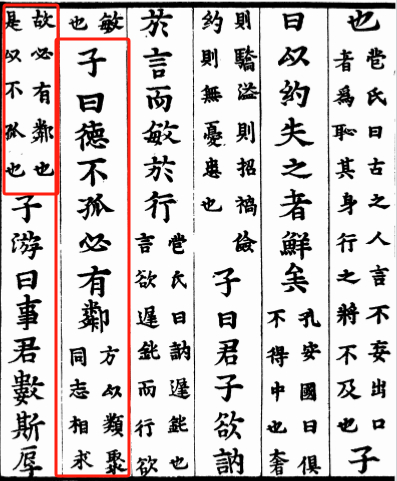 也苞氏曰古之人言不妄出口者為恥其身行之將不及也子
曰以約失之者鮮矣孔安國曰俱不得中也奢
則驕溢則招禍儉約則無憂患也子曰君子欲訥
於言而敏於行苞氏曰訥遲鈍也言欲遲鈍而行欲
敏也子曰德不孤必有鄰方以類聚同志相求
故必有鄰也是以不孤也子游曰事君數斯辱